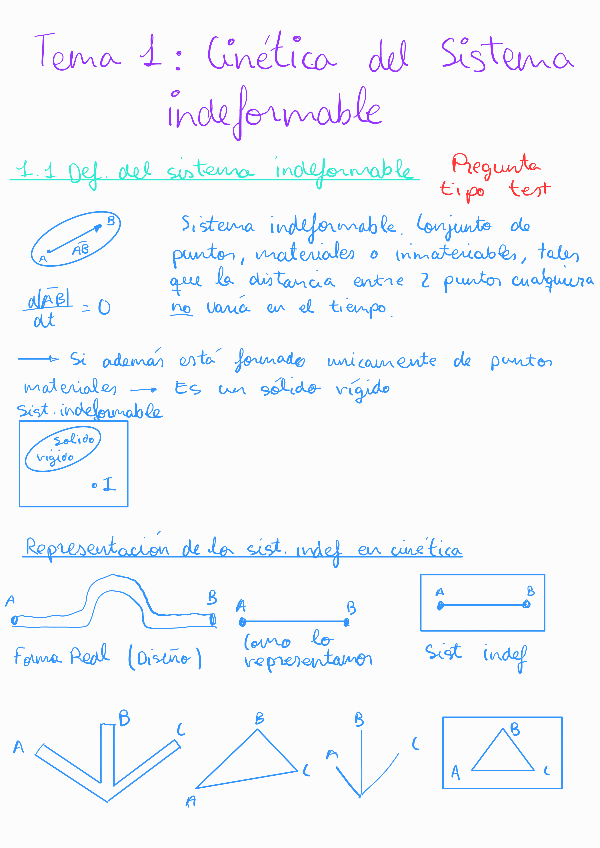 Tema 1: Cinética del Sistema
indeformable
1.1 Def. del sistema indeformable
Pregunta
tipo test
A
B
AB
Sistema indeformable. Conjunto de
puntos, materiales o inmateriables, tales
que la distancia entre 2 puntos cualquiera
no varía en el tiempo.
d|AB|/dt = 0
→ Si además está formado unicamente de puntos
materiales → Es un sólido rígido
sist. indeformable
Solido
rígido
I
Representación de los sist. indef en cinética
A
B
A
B
A
B
Forma Real (Diseño)
Como lo
representamos
Sist indef
A
B
C
A
B
C
A
B
C
A
B
C